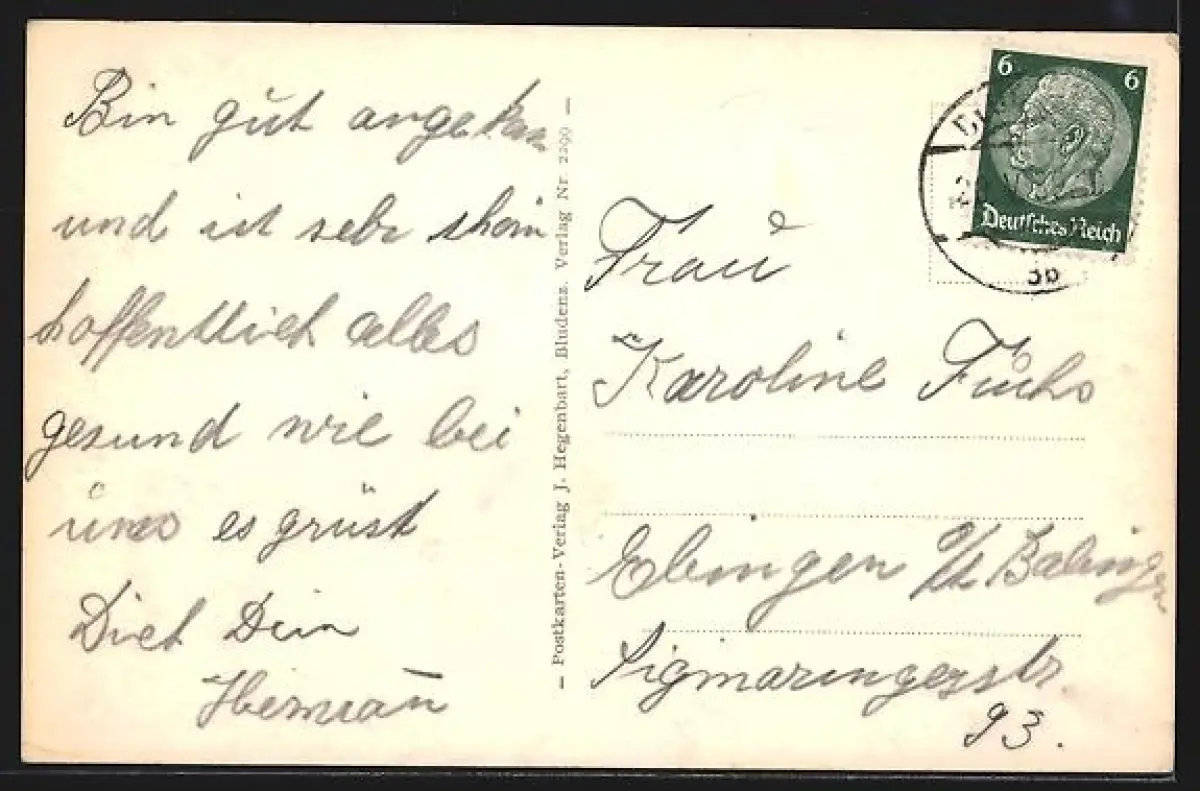 Bin gut angekom
und ist sehr shön
hoffentlich alles
gesund wie bei
uns es grüst
Dich Dein
Herman̄
— Postkarten-Verlag J. Hegenbart, Bludenz. Verlag Nr. 2290 —
6 6
Deutsches Reich
3b
Frau
Karoline Fuchs
Ebingen Balingen
Sigmaringerstr.
93.